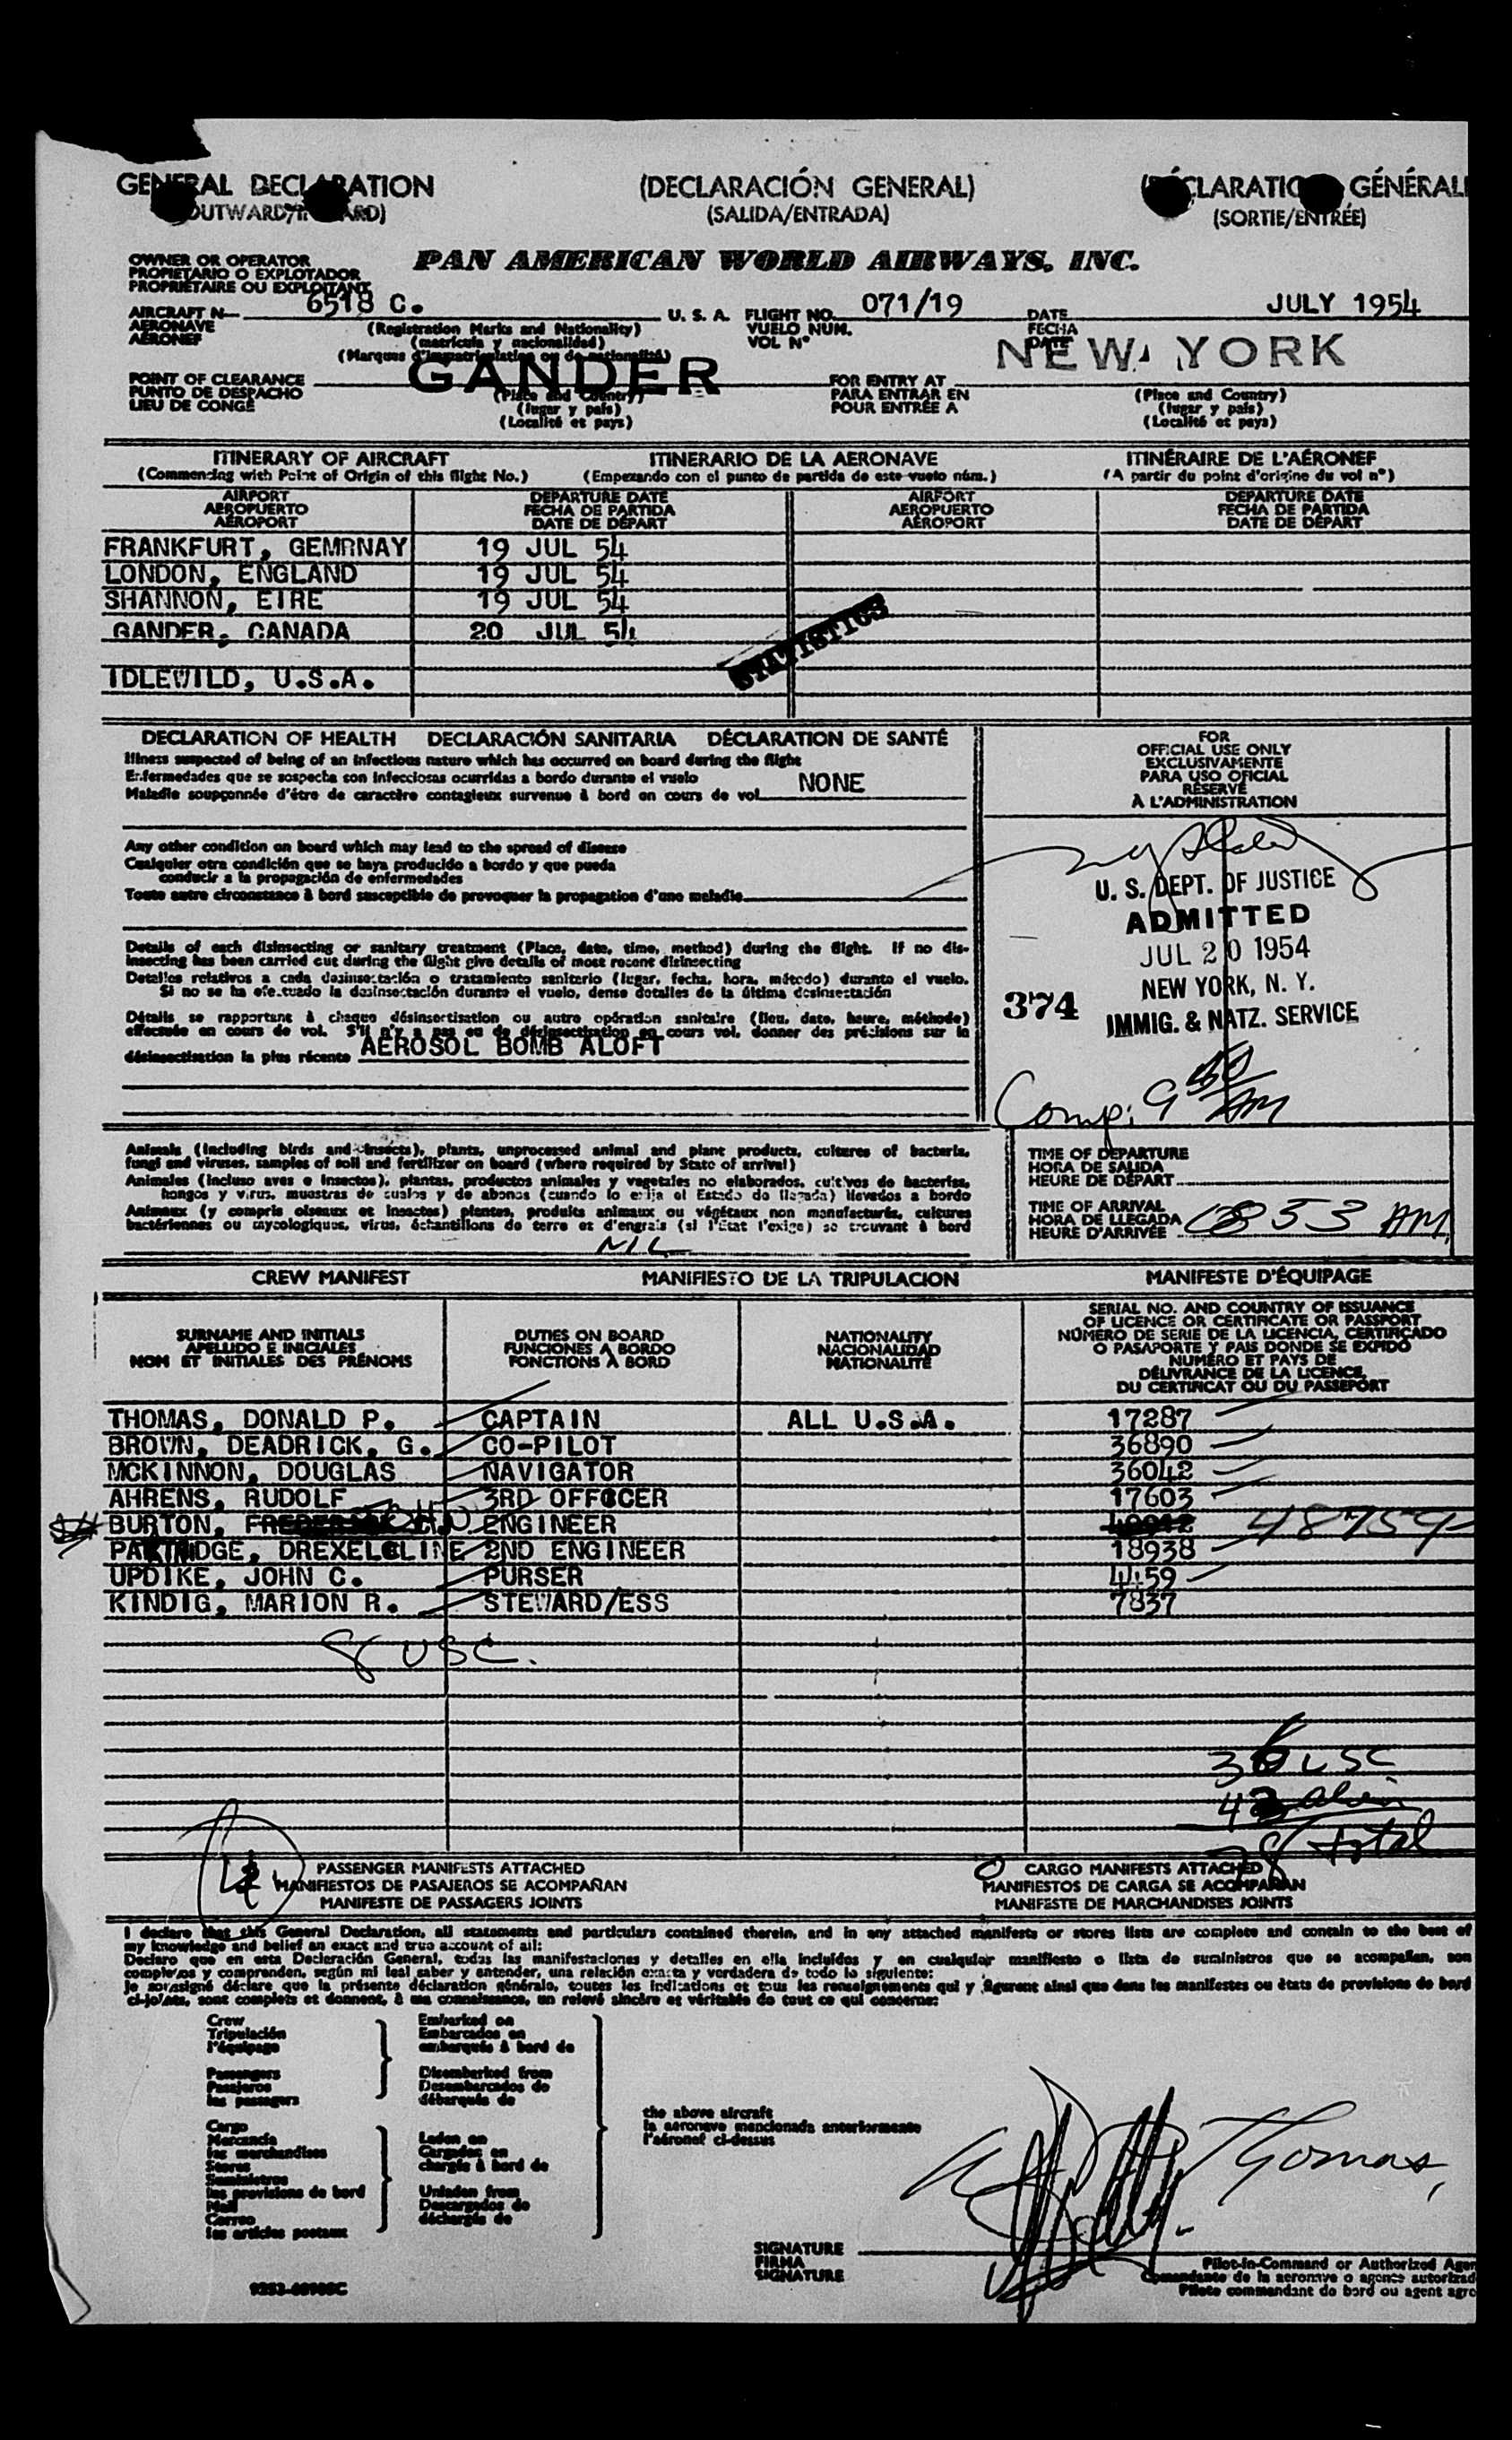 GENERAL DECLARATION (DECLARACIÓN GENERAL) (DÉCLARATION GÉNÉRAL
(OUTWARD/INWARD) (SALIDA/ENTRADA) (SORTIE/ENTRÉE)
OWNER OR OPERATOR
PROPIETARIO O EXPLOTADOR
PROPRIÉTAIRE OU EXPLOITANT
PAN AMERICAN WORLD AIRWAYS, INC.
AIRCRAFT N— 6518 C. U. S. A. FLIGHT NO. 071/19 DATE JULY 1954
AERONAVE (Registration Marks and Nationality) VUELO NUM. FECHA
AÉRONEF (matrícula y nacionalidad) VOL N° DATE
(Marques d'immatriculation ou de nationalité)
POINT OF CLEARANCE GANDER FOR ENTRY AT NEW YORK
PUNTO DE DESPACHO (Place and Country) PARA ENTRAR EN (Place and Country)
LIEU DE CONGÉ (lugar y país) POUR ENTRÉE A (lugar y país)
(Localité et pays) (Localité et pays)
ITINERARY OF AIRCRAFT ITINERARIO DE LA AERONAVE ITINÉRAIRE DE L'AÉRONEF
(Commencing with Point of Origin of this flight No.) (Empezando con el punto de partida de este vuelo núm.) (A partir du point d'origine du vol n°)
AIRPORT DEPARTURE DATE AIRPORT DEPARTURE DATE
AEROPUERTO FECHA DE PARTIDA AEROPUERTO FECHA DE PARTIDA
AÉROPORT DATE DE DÉPART AÉROPORT DATE DE DÉPART
FRANKFURT, GEMRNAY 19 JUL 54
LONDON, ENGLAND 19 JUL 54
SHANNON, EIRE 19 JUL 54
GANDER, CANADA 20 JUL 54
STATISTICS
IDLEWILD, U.S.A.
DECLARATION OF HEALTH DECLARACIÓN SANITARIA DÉCLARATION DE SANTÉ
Illness suspected of being of an infectious nature which has occurred on board during the flight
Enfermedades que se sospecha son infecciosas ocurridas a bordo durante el vuelo
Maladie soupçonnée d'être de caractère contagieux survenue à bord en cours de vol NONE
Any other condition on board which may lead to the spread of disease
Cualquier otra condición que se haya producido a bordo y que pueda
conducir a la propagación de enfermedades
Toute autre circonstance à bord susceptible de provoquer la propagation d'une maladie
Details of each disinsecting or sanitary treatment (Place, date, time, method) during the flight. If no dis-
insecting has been carried out during the flight give details of most recent disinsecting
Detalles relativos a cada desinsectación o tratamiento sanitario (lugar, fecha, hora, método) durante el vuelo.
Si no se ha efectuado la desinsectación durante el vuelo, dense detalles de la última desinsectación
Détails se rapportant à chaque désinsectisation ou autre opération sanitaire (lieu, date, heure, méthode)
effectuée en cours de vol. S'il n'y a pas eu de désinsectisation en cours vol, donner des précisions sur la
désinsectisation la plus récente AEROSOL BOMB ALOFT
FOR
OFFICIAL USE ONLY
EXCLUSIVAMENTE
PARA USO OFICIAL
RÉSERVÉ
À L'ADMINISTRATION
U. S. DEPT. OF JUSTICE
ADMITTED
JUL 20 1954
374 NEW YORK, N. Y.
IMMIG. & NATZ. SERVICE
Comp: 9 30 AM
Animals (including birds and insects), plants, unprocessed animal and plant products, cultures of bacteria,
fungi and viruses, samples of soil and fertilizer on board (where required by State of arrival)
Animales (incluso aves e insectos), plantas, productos animales y vegetales no elaborados, cultivos de bacterias,
hongos y virus, muestras de suelos y de abonos (cuando lo exija el Estado de llegada) llevados a bordo
Animaux (y compris oiseaux et insectes) plantes, produits animaux ou végétaux non manufacturés, cultures
bactériennes ou mycologiques, virus, échantillons de terre et d'engrais (si l'Etat l'exige) se trouvant à bord
NIL
TIME OF DEPARTURE
HORA DE SALIDA
HEURE DE DÉPART
TIME OF ARRIVAL
HORA DE LLEGADA
HEURE D'ARRIVÉE 0853 AM
CREW MANIFEST MANIFIESTO DE LA TRIPULACION MANIFESTE D'ÉQUIPAGE
SURNAME AND INITIALS
APELLIDO E INICIALES
NOM ET INITIALES DES PRÉNOMS
DUTIES ON BOARD
FUNCIONES A BORDO
FONCTIONS À BORD
NATIONALITY
NACIONALIDAD
NATIONALITÉ
SERIAL NO. AND COUNTRY OF ISSUANCE
OF LICENCE OR CERTIFICATE OR PASSPORT
NÚMERO DE SERIE DE LA LICENCIA, CERTIFICADO
O PASAPORTE Y PAIS DONDE SE EXPIDÓ
NUMÉRO ET PAYS DE
DÉLIVRANCE DE LA LICENCE,
DU CERTIFICAT OU DU PASSEPORT
THOMAS, DONALD P. CAPTAIN ALL U.S.A. 17287
BROWN, DEADRICK, G. CO-PILOT 36890
MCKINNON, DOUGLAS NAVIGATOR 36042
AHRENS, RUDOLF 3RD OFFCCER 17603
BURTON, JOHN ENGINEER 48759
PARTRIDGE, DREXEL CLINE 2ND ENGINEER 18938
UPDIKE, JOHN C. PURSER 4459
KINDIG, MARION R. STEWARD/ESS 7837
8 USC.
36 USC
42 alien
78 total
PASSENGER MANIFESTS ATTACHED 0 CARGO MANIFESTS ATTACHED
MANIFIESTOS DE PASAJEROS SE ACOMPAÑAN MANIFIESTOS DE CARGA SE ACOMPAÑAN
MANIFESTE DE PASSAGERS JOINTS MANIFESTE DE MARCHANDISES JOINTS
I declare that this General Declaration, all statements and particulars contained therein, and in any attached manifests or stores lists are complete and contain to the best of
my knowledge and belief an exact and true account of all:
Declaro que en esta Declaración General, todas las manifestaciones y detalles en ella incluidos y en cualquier manifiesto o lista de suministros que se acompañan, son
completos y comprenden, según mi leal saber y entender, una relación exacta y verdadera de todo lo siguiente:
Je soussigné déclare que la présente déclaration générale, toutes les indications et tous les renseignements qui y figurent ainsi que dans les manifestes ou états de provisions de bord
ci-joints, sont complets et donnent, à ma connaissance, un relevé sincère et véritable de tout ce qui concerne:
Crew
Tripulación
l'équipage
Passengers
Pasajeros
les passagers
Cargo
Mercancía
les marchandises
Stores
Suministros
les provisions de bord
Mail
Correo
les articles postaux
Embarked on
Embarcados en
embarqués à bord de
Disembarked from
Desembarcados de
débarqués de
Laden on
Cargados en
chargés à bord de
Unladen from
Descargados de
déchargés de
the above aircraft
la aeronave mencionada anteriormente
l'aéronef ci-dessus
Thomas
SIGNATURE
FIRMA
SIGNATURE
Pilot-in-Command or Authorized Agen
Comandante de la aeronave o agente autorizad
Pilote commandant de bord ou agent agré